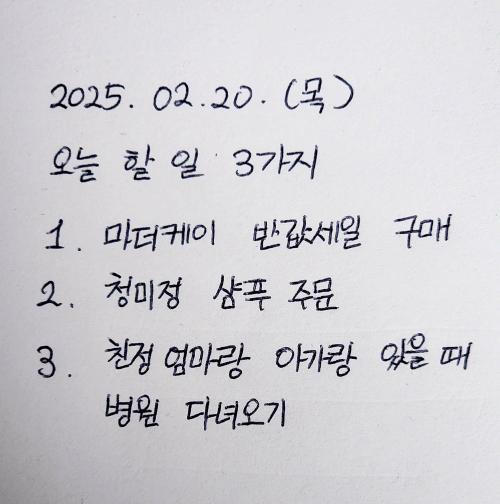 2025. 02. 20. (목)
오늘 할 일 3가지
1. 마더케이 반값세일 구매
2. 청미정 샴푸 주문
3. 친정엄마랑 아가랑 있을 때
병원 다녀오기